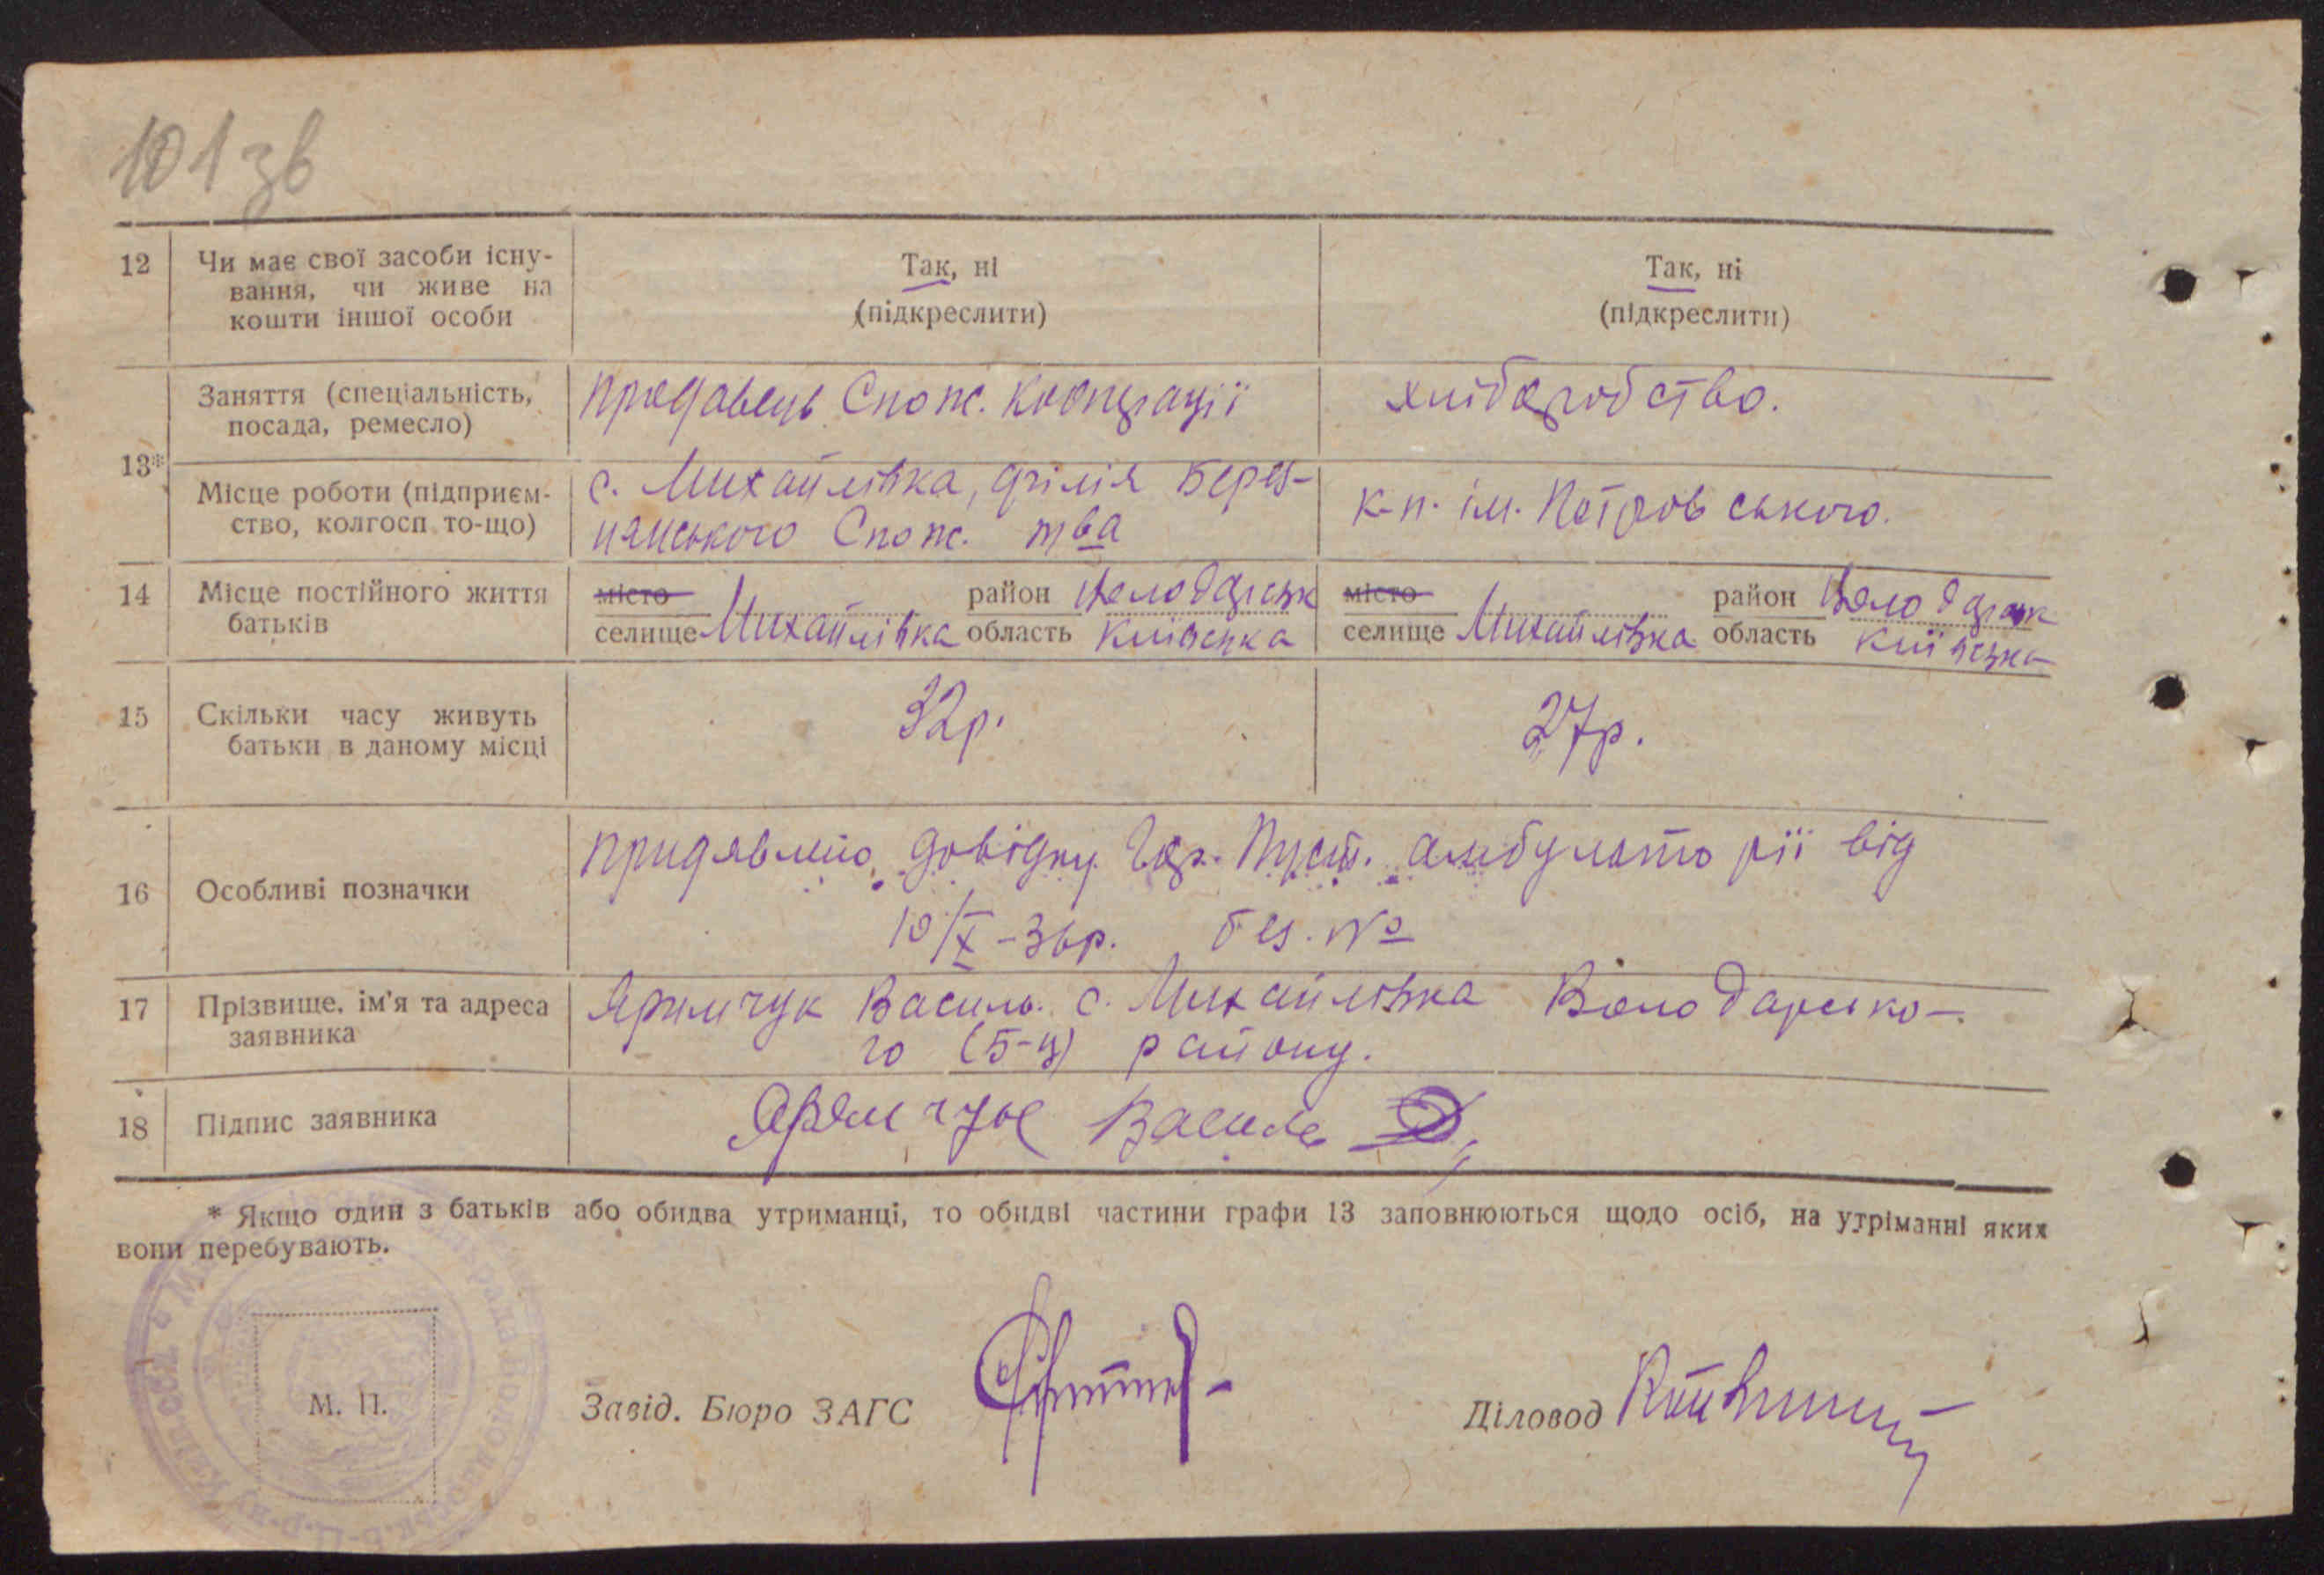 101 зв
12 Чи має свої засоби існу-
вання, чи живе на
кошти іншої особи
Так, ні
(підкреслити)
Так, ні
(підкреслити)
13*
Заняття (спеціальність,
посада, ремесло)
продавець Спож. Кооперації
хліборобство.
Місце роботи (підприєм-
ство, колгосп то-що)
с. Михайлівка, філія Берез-
нянського Спож. тва
к-п. ім. Петровського.
14 Місце постійного життя
батьків
місто
селище Михайлівка
район Володарськ
область Київська
місто
селище Михайлівка
район Володарськ
область Київська
15 Скільки часу живуть
батьки в даному місці
32р.
27р.
16 Особливі позначки
придявлено довідку Гор. Пуст. амбулаторії від
10/X-36р. без. №
17 Прізвище, ім'я та адреса
заявника
Яримчук Василь. с. Михайлівка Володарсько-
го (Б-Ц) району.
18 Підпис заявника
Яремчук Василь
* Якщо один з батьків або обидва утриманці, то обидві частини графи 13 заповнюються щодо осіб, на утріманні яких
вони перебувають.
М. П.
Завід. Бюро ЗАГС
Діловод